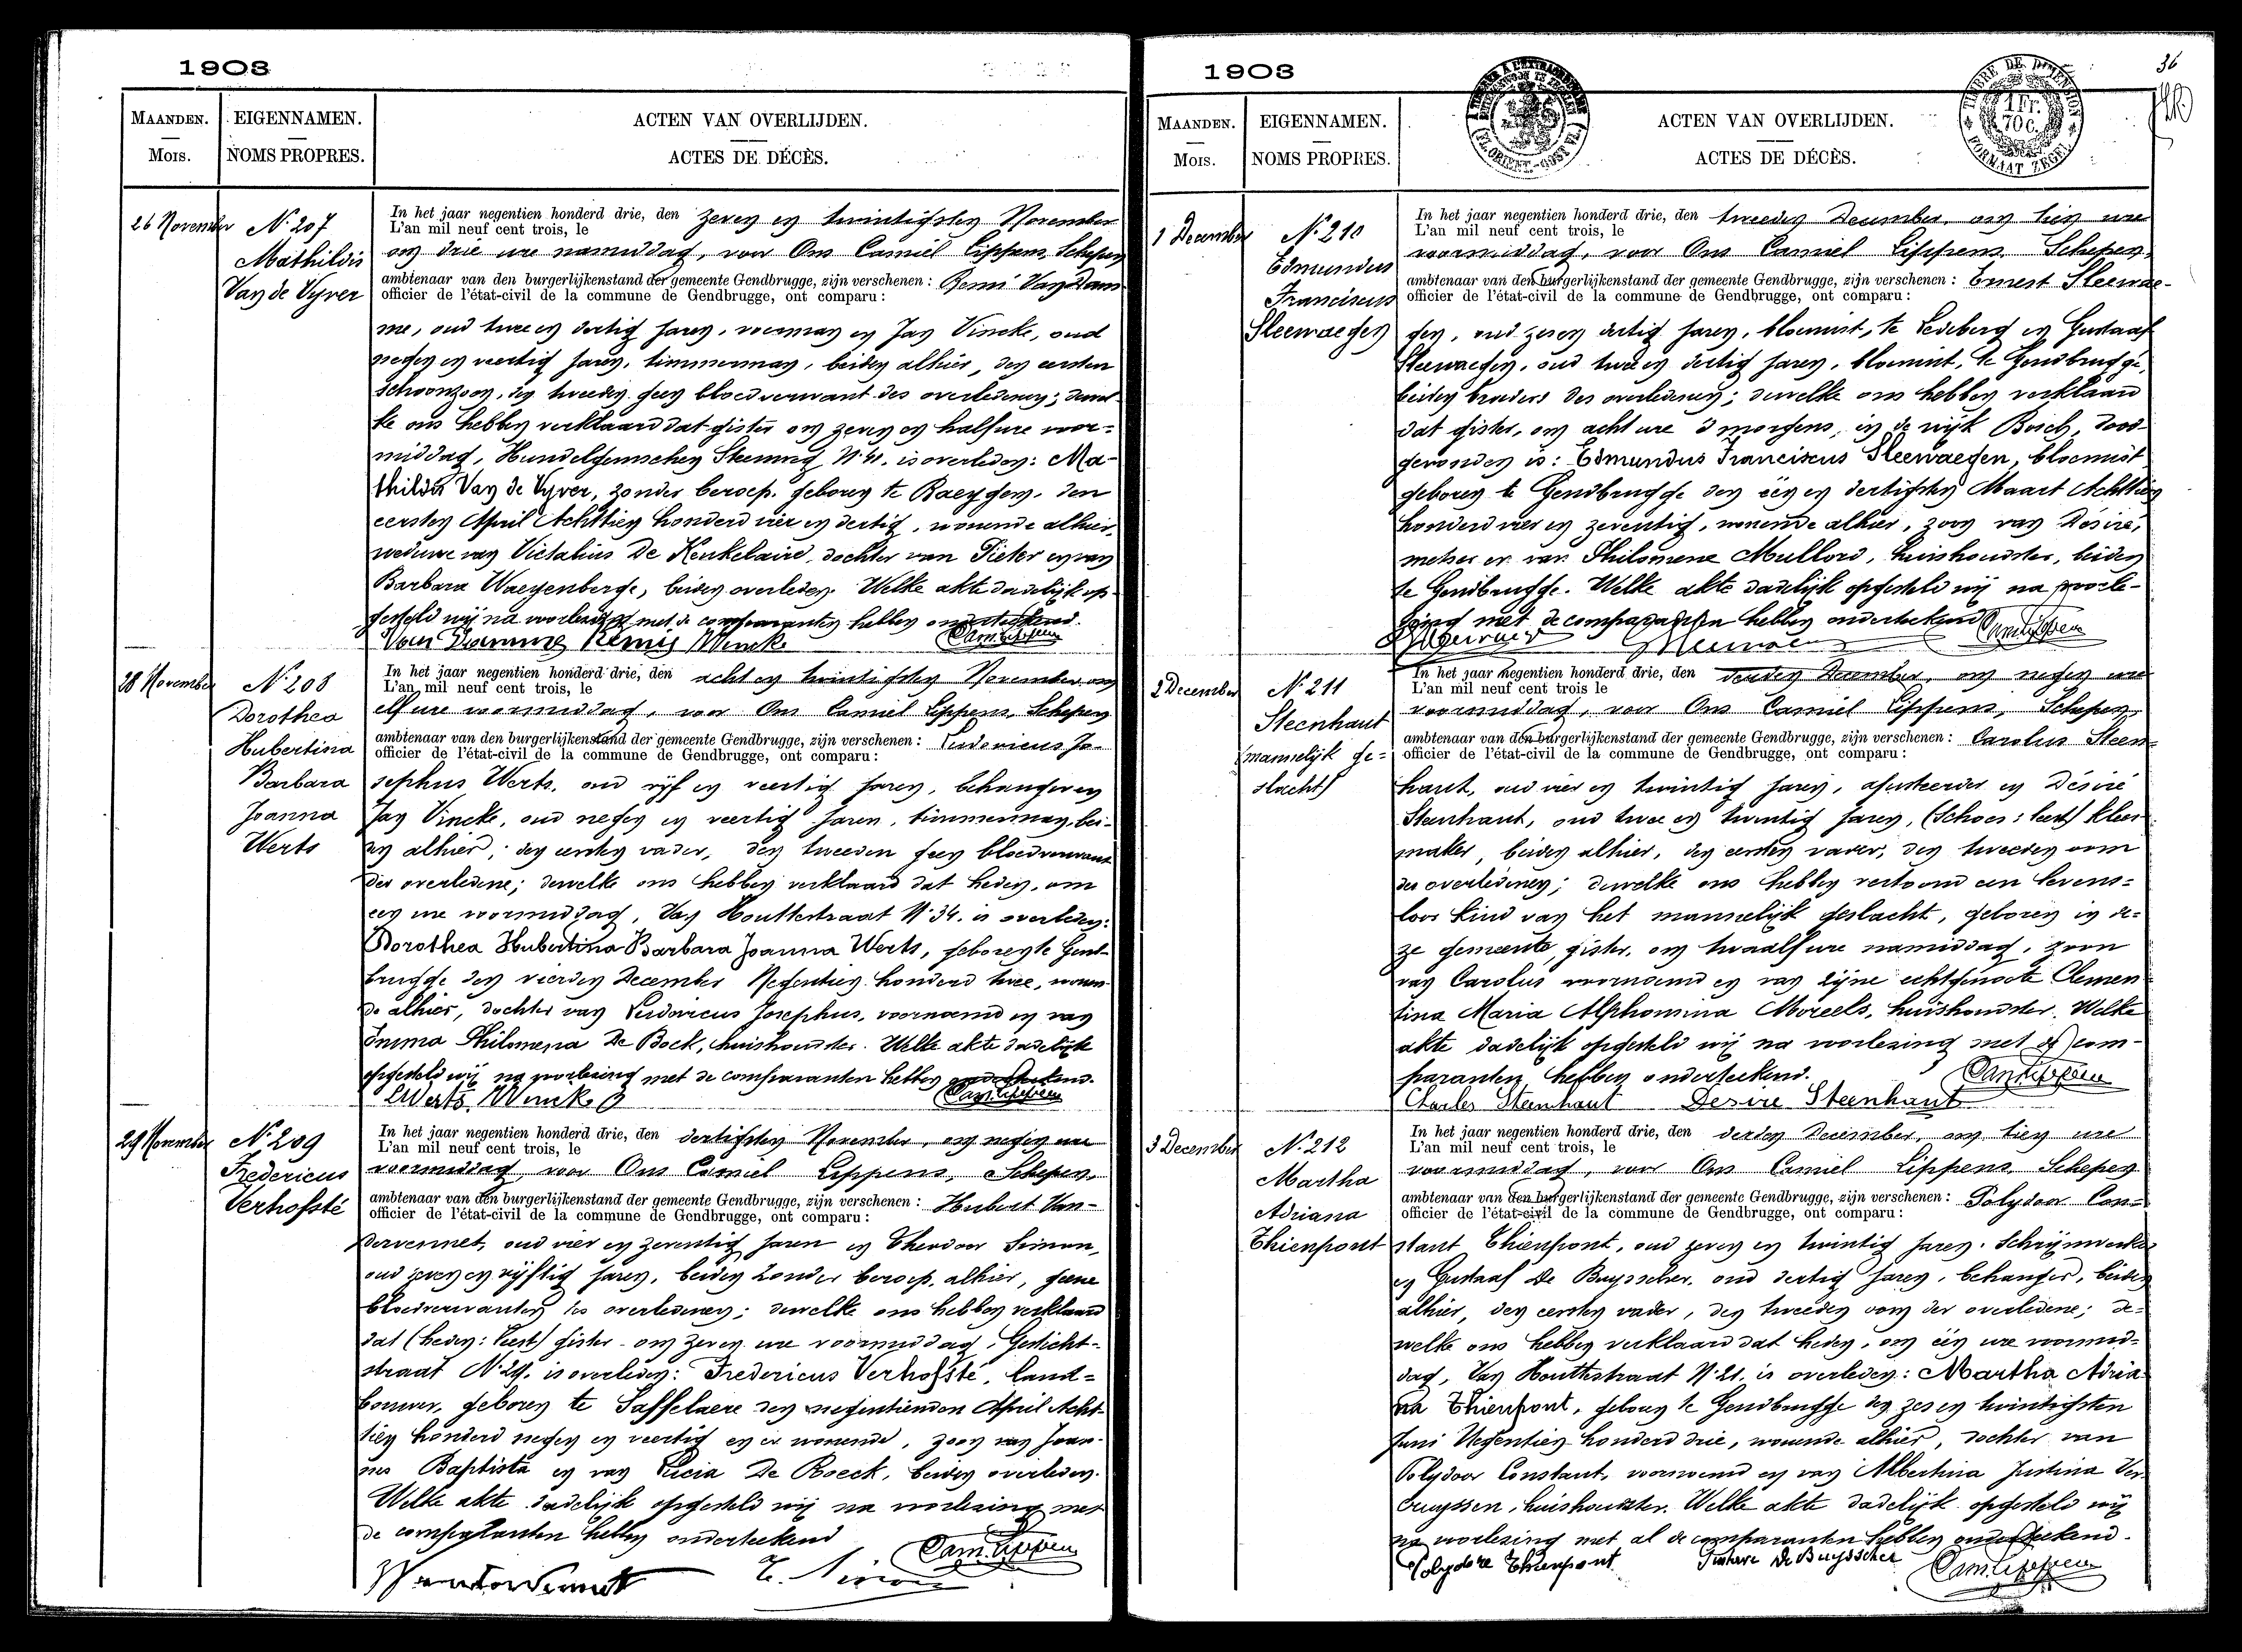 1903
MAANDEN. EIGENNAMEN. ACTEN VAN OVERLIJDEN.
MOIS. NOMS PROPRES. ACTES DE DÉCÈS.
26 November
N. 207
Mathildis
Van de Vyver
In het jaar negentien honderd drie, den zeven en twintigsten November
L'an mil neuf cent trois, le
om drie ure namiddag, voor Ons Camiel Lippens, Schepen
ambtenaar van den burgerlijkenstand der gemeente Gendbrugge, zijn verschenen: Remi Van Dam
officier de l'état-civil de la commune de Gendbrugge, ont comparu:
me, oud twee en dertig jaren, voerman en Jan Vincke, oud
negen en veertig jaren, timmerman, beiden alhier, den eersten
schoonzoon, den tweeden geen bloedverwant des overledenen; dewel-
ke ons hebben verklaard dat gister om zeven en half ure voor=
middag, Hundelgemschen Steenweg N. 41. is overleden: Ma-
thildis Van de Vyver, zonder beroep, geboren te Baeygem, den
eersten April Achttien honderd vier en dertig, wonende alhier,
weduwe van Victalius De Keukelaire, dochter van Pieter en van
Barbara Waeyenberge, beiden overleden. Welke akte dadelijk op-
gesteld wij na voorlezing met de comparanten hebben onderteekend.
Van Damme Remij JVincke Cam. Lippens
28 November
N. 208
Dorothea
Hubertina
Barbara
Joanna
Werts
In het jaar negentien honderd drie, den acht en twintigsten November om
L'an mil neuf cent trois, le
elf ure voormiddag, voor Ons Camiel Lippens, Schepen
ambtenaar van den burgerlijkenstand der gemeente Gendbrugge, zijn verschenen: Ludovicus Jo-
officier de l'état-civil de la commune de Gendbrugge, ont comparu:
sephus Werts, oud vijf en veertig jaren, behanger en
Jan Vincke, oud negen en veertig jaren, timmerman, bei-
den alhier, den eersten vader, den tweeden geen bloedverwant
der overledene; dewelke ons hebben verklaard dat heden, om
een ure voormiddag, Van Houttestraat N. 34. is overleden:
Dorothea Hubertina Barbara Joanna Werts, geboren te Gend-
brugge den vierden December Negentien honderd twee, wonen-
de alhier, dochter van Ludovicus Josephus, voornoemd en van
Emma Philomena De Bock, huishoudster. Welke akte dadelijk
opgesteld wij na voorlezing met de comparanten hebben onderteekend.
LWerts. JVincke Cam. Lippens
29 November
N. 209
Fredericus
Verhofsté
In het jaar negentien honderd drie, den dertigsten November, om negen ure
L'an mil neuf cent trois, le
voormiddag, voor Ons Camiel Lippens, Schepen,
ambtenaar van den burgerlijkenstand der gemeente Gendbrugge, zijn verschenen: Hubert Van-
officier de l'état-civil de la commune de Gendbrugge, ont comparu:
dervennet, oud vier en zeventig jaren en Theodoor Simon,
oud zeven en vijftig jaren, beiden zonder beroep, alhier, geene
bloedverwanten des overledenen; dewelke ons hebben verklaard
dat (heden: leest) gister om zeven ure voormiddag, Gesticht-
straat N. 29. is overleden: Fredericus Verhofsté, land=
bouwer, geboren te Saffelaere den negentienden April Acht-
tien honderd negen en veertig en er wonende, zoon van Joan-
nes Baptista en van Lucia De Roeck, beiden overleden.
Welke akte dadelijk opgesteld wij na voorlezing met
de comparanten hebben onderteekend
T. Simon Cam. Lippens
1903
36
TIMBRE DE DIMENSION
1 Fr.
70 C.
FORMAAT ZEGEL
MAANDEN. EIGENNAMEN. ACTEN VAN OVERLIJDEN.
MOIS. NOMS PROPRES. ACTES DE DÉCÈS.
1 December
N. 210
Edmundus
Franciscus
Sleewaegen
In het jaar negentien honderd drie, den tweeden December, om tien ure
L'an mil neuf cent trois, le
voormiddag, voor Ons Camiel Lippens, Schepen,
ambtenaar van den burgerlijkenstand der gemeente Gendbrugge, zijn verschenen: Ernest Sleewae-
officier de l'état-civil de la commune de Gendbrugge, ont comparu:
gen, oud zes en dertig jaren, bloemist, te Ledeberg en Gustaaf
Sleewaegen, oud twee en dertig jaren, bloemist, te Gendbrugge,
beiden broeders des overledenen; dewelke ons hebben verklaard
dat gister, om acht ure 's morgens, in de wijk Bosch, dood-
gevonden is: Edmundus Franciscus Sleewaegen, bloemist
geboren te Gendbrugge den een en dertigsten Maart Achttien
honderd vier en zeventig, wonende alhier, zoon van Désiré,
metser en van Philomene Mullord, huishoudster, beiden
te Gendbrugge. Welke akte dadelijk opgesteld wij na voorle-
zing met de comparanten hebben onderteekend
Cam. Lippens
2 December
N. 211
Steenhaut
(mannelijk ge=
slacht)
In het jaar negentien honderd drie, den derden December, om negen ure
L'an mil neuf cent trois le
voormiddag, voor Ons Camiel Lippens, Schepen,
ambtenaar van den burgerlijkenstand der gemeente Gendbrugge, zijn verschenen: Carolus Steen-
officier de l'état-civil de la commune de Gendbrugge, ont comparu:
haut, oud vier en twintig jaren, ajusteerder en Désiré
Steenhaut, oud twee en twintig jaren, (Schoen: leest) kleer
maker, beiden alhier, den eersten vader, den tweeden oom
des overledenen; dewelke ons hebben vertoond een levens=
loos kind van het mannelijk geslacht, geboren in de=
ze gemeente, gister, om twaalf ure namiddag, zoon
van Carolus voornoemd en van zijne echtgenoote Clemen
tina Maria Alphonsina Moreels, huishoudster. Welke
akte dadelijk opgesteld wij na voorlezing met de com-
paranten hebben onderteekend. Cam. Lippens
Charles Steenhaut Desire Steenhaut
3 December
N. 212
Martha
Adriana
Thienpont
In het jaar negentien honderd drie, den derden December, om tien ure
L'an mil neuf cent trois, le
voormiddag, voor Ons Camiel Lippens, Schepen
ambtenaar van den burgerlijkenstand der gemeente Gendbrugge, zijn verschenen: Polydoor Con=
officier de l'état-civil de la commune de Gendbrugge, ont comparu:
stant Thienpont, oud zeven en twintig jaren, Schrijnwerker
en Gustaaf De Buysscher, oud dertig jaren, behanger, beiden
alhier, den eersten vader, den tweeden oom der overledene; de=
welke ons hebben verklaard dat heden, om één ure voormid=
dag, Van Houttestraat N. 21. is overleden: Martha Adria-
na Thienpont, geboren te Gendbrugge den zes en twintigsten
Juni Negentien honderd drie, wonende alhier, dochter van
Polydoor Constant, voornoemd en van Albertina Justina Ver-
cruyssen, huishoudster. Welke akte dadelijk opgesteld wij
na voorlezing met al de comparanten hebben onderteekend.
Polydore Thienpont Gustave De Buysscher Cam. Lippens